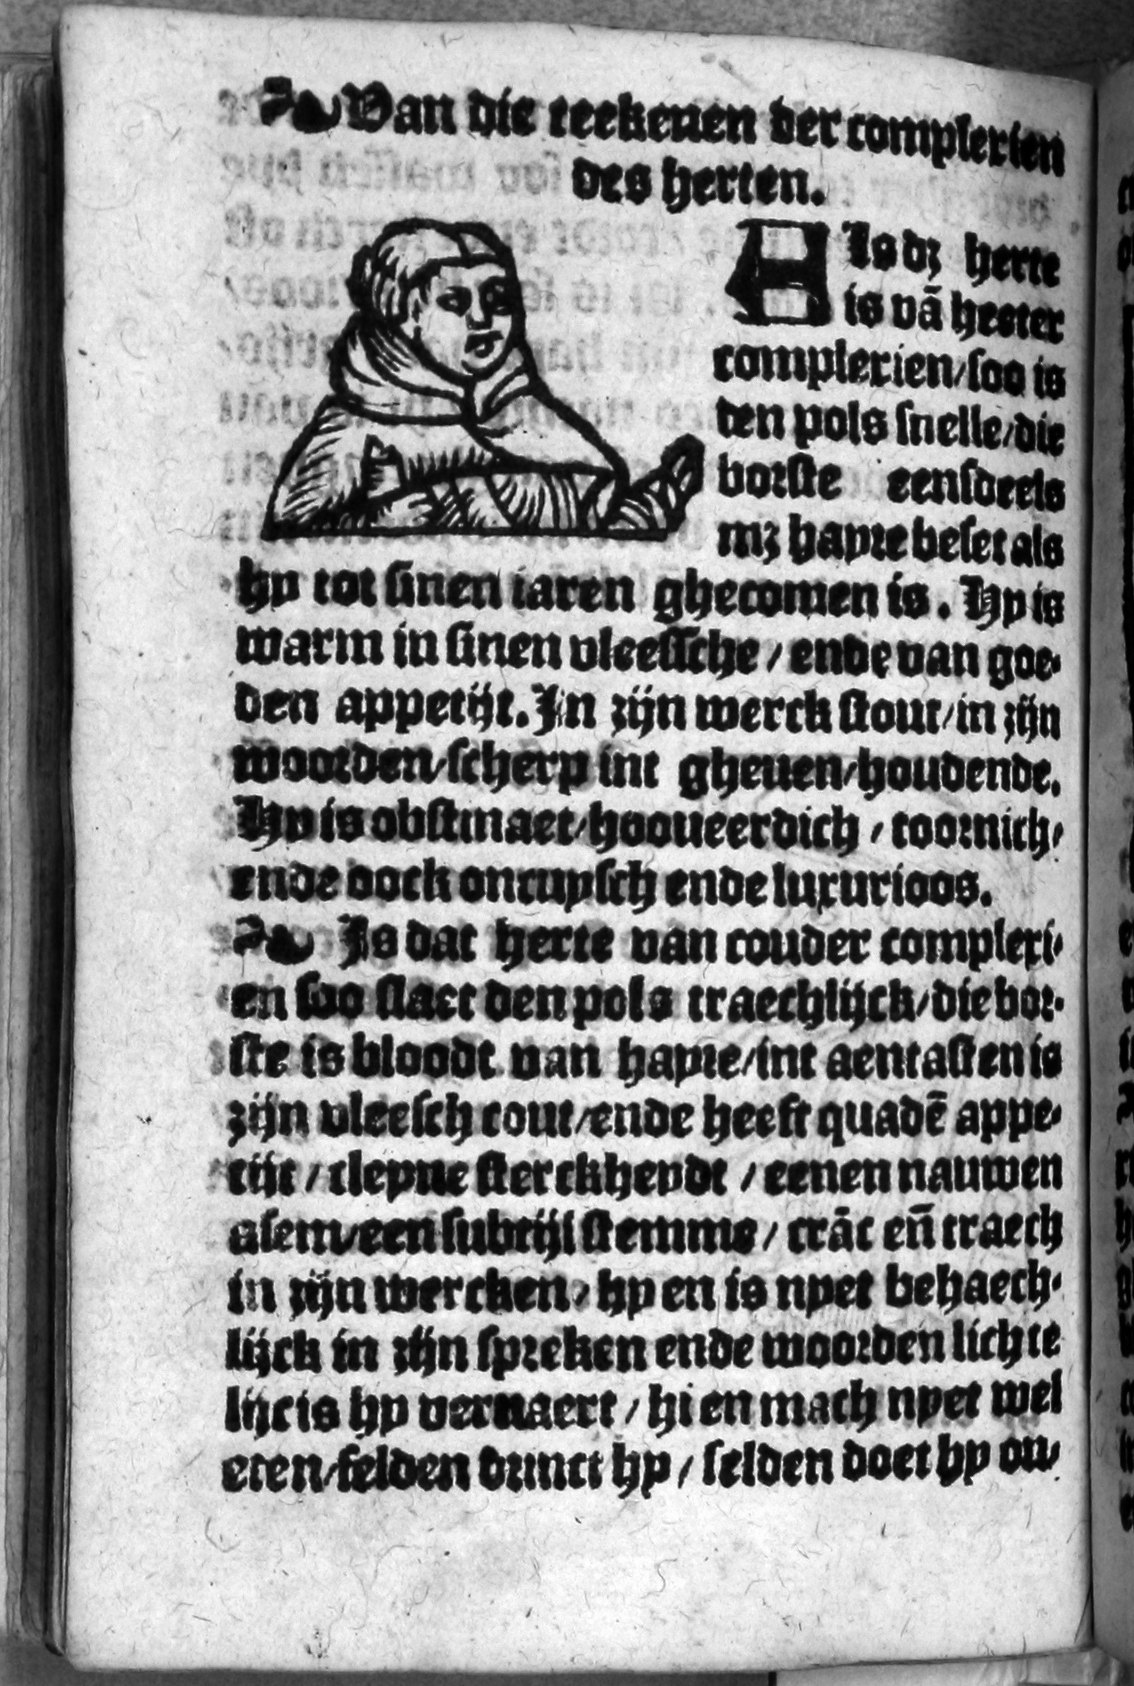 ❧ Van die teekenen der complexien
des herten.
Als dz herte
is vā heeter
complexien/soo is
den pols snelle/die
borste eensdeels
mz hayre beset als
hy tot sinen iaren ghecomen is. Hy is
warm in sinen vleessche/ende van goe-
den appetijt. In zijn werck stout/in zijn
woorden/scherp int gheuen/houdende.
Hy is obstinaet/hooueerdich/toornich/
ende oock oncuysch ende luxurioos.
❧ Is dat herte van couder complexi-
en soo slaet den pols traechlijck/die bor-
ste is bloodt van hayre/int aentasten is
zijn vleesch cout/ende heeft quadē appe-
tijt/cleyne sterckheydt/eenen nauwen
asem/een subtijl stemme/crāc eñ traech
in zijn wercken/hy en is nyet behaech-
lijck in zijn spreken ende woorden lichte
lijc is hy vernaert/hi en mach nyet wel
eten/selden drinct hy/selden doet hy on/